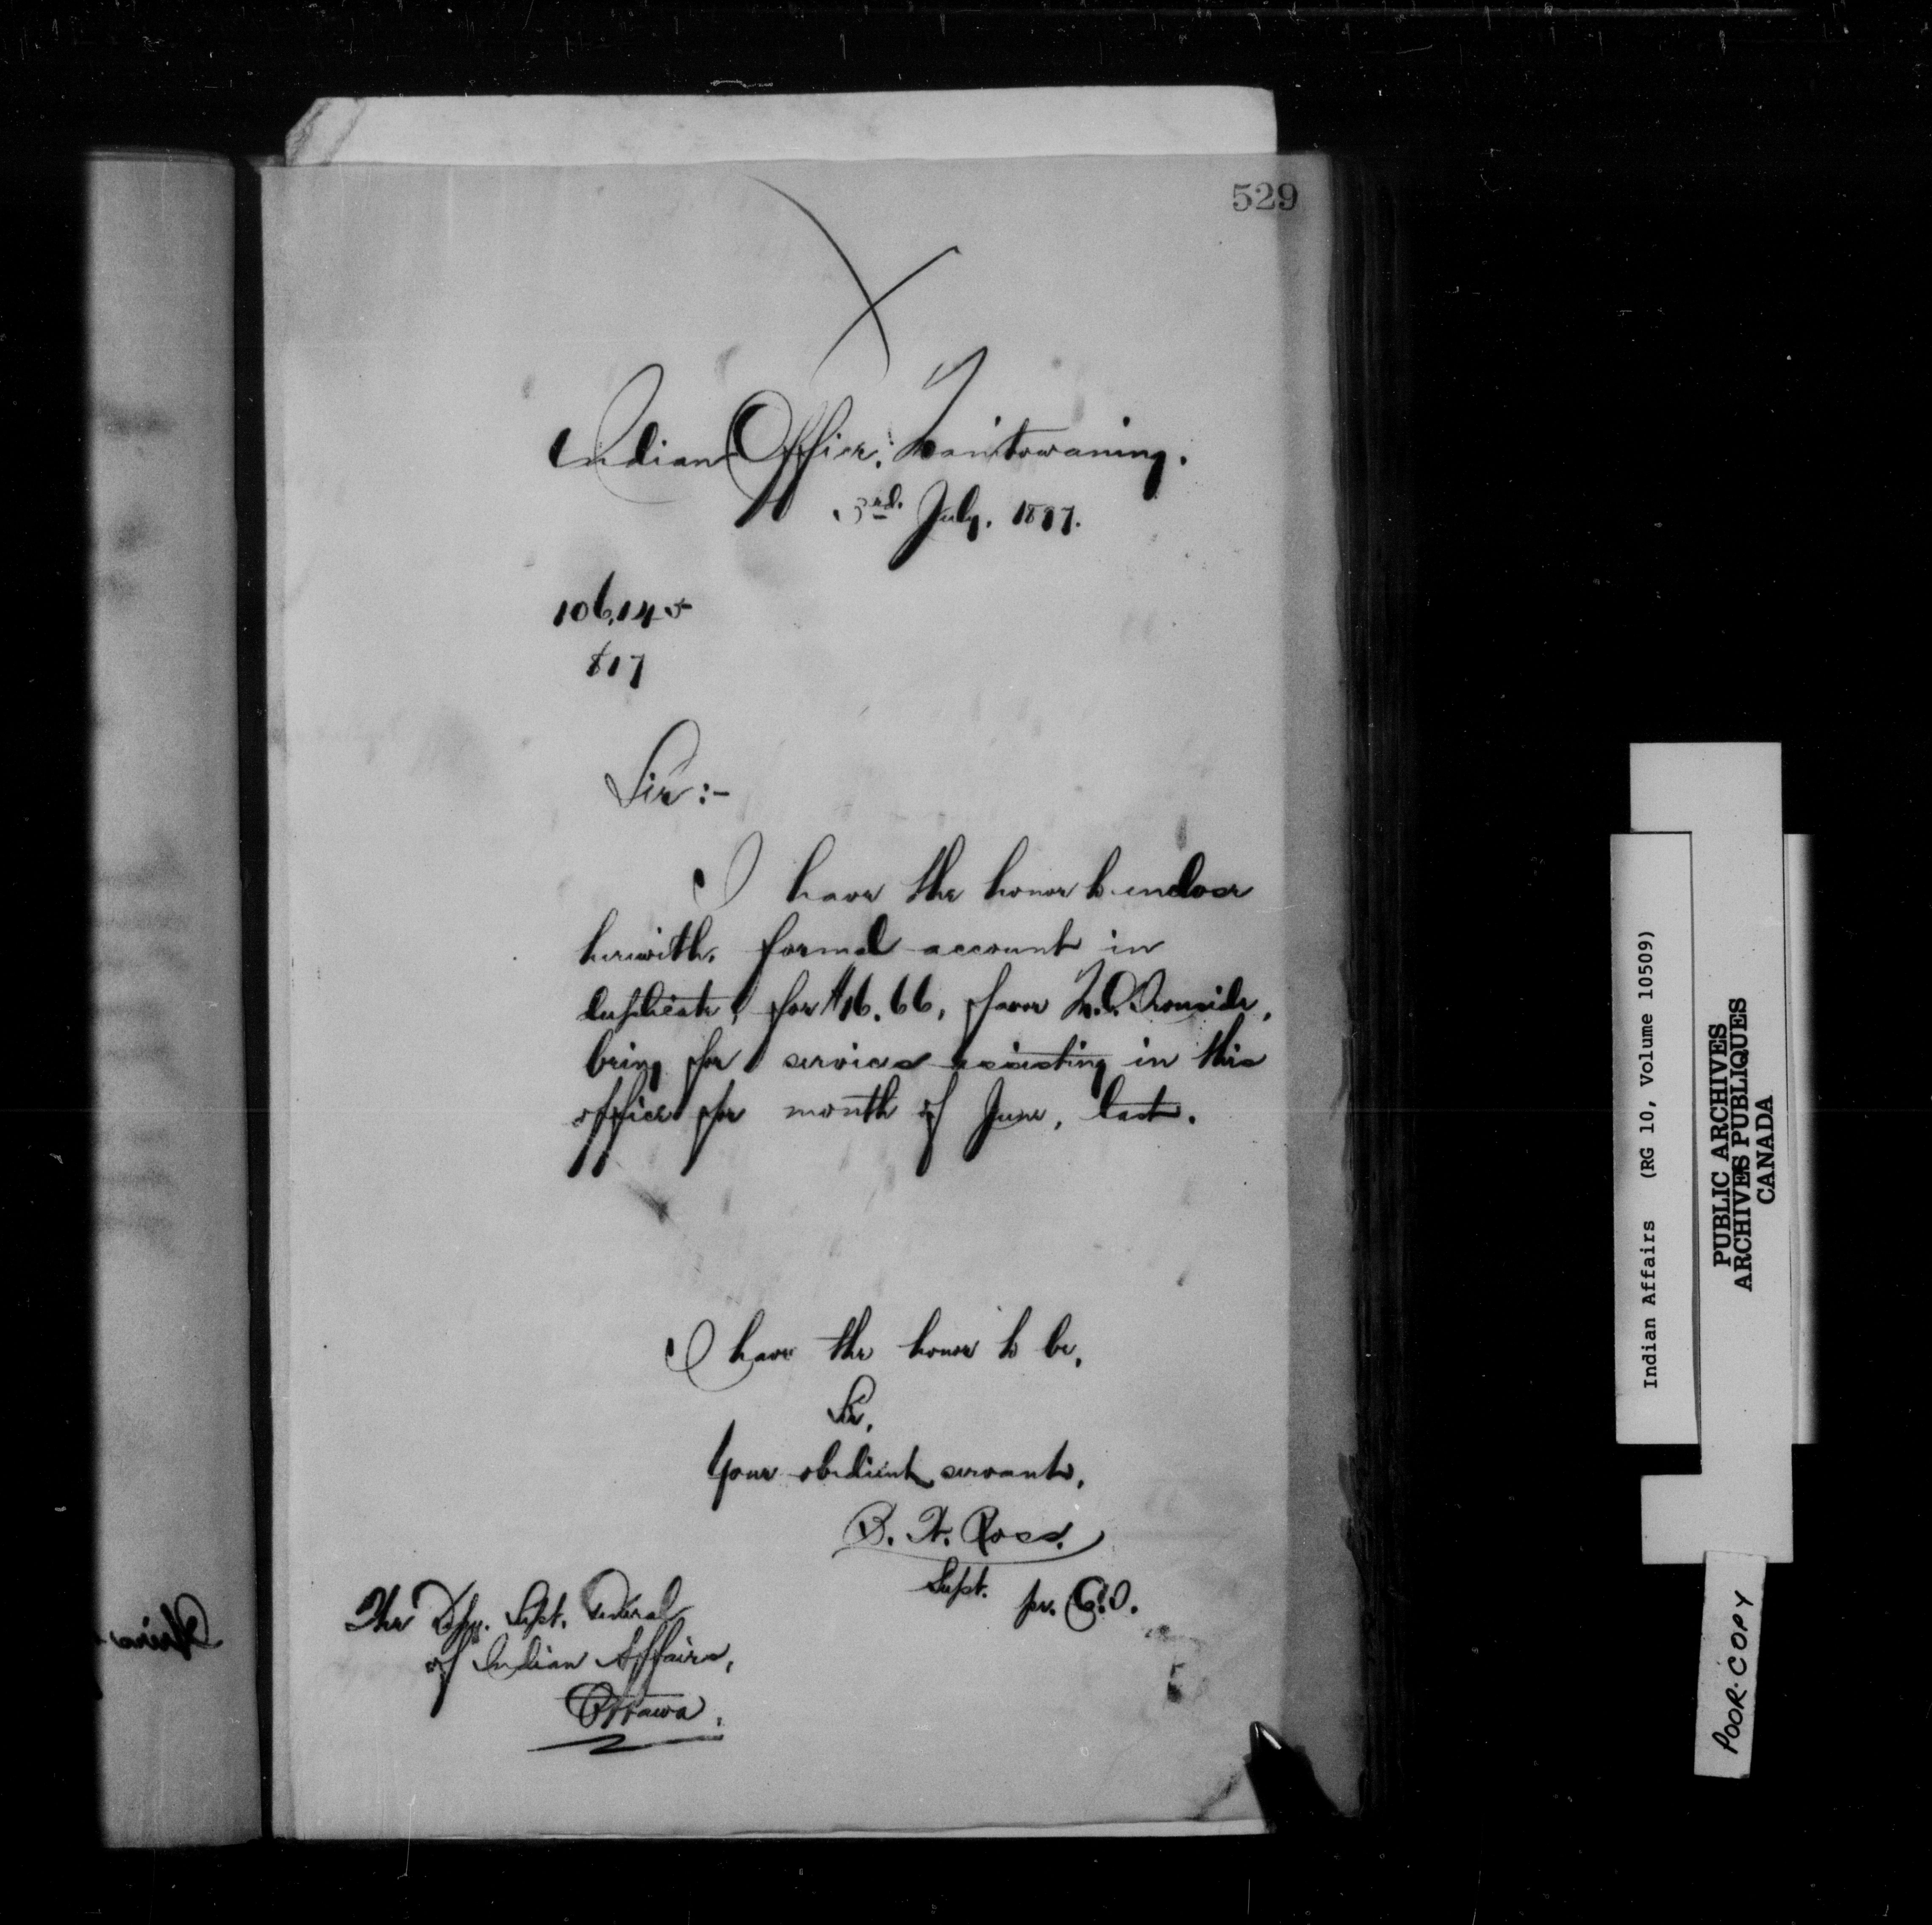 529
Indian Office, Manitowaning.
3rd. July, 1897.
106,145
817
Sir:-
I have the honor to enclose
herewith, formal account in
duplicate, for $16.66, favor Ironside,
being for services assisting in this
office for month of June, last.
I have the honor to be,
Sir,
Your obedient servant,
B. W. Ross.
Supt. pr.
The Dpy. Supt. General
of Indian Affairs,
Ottawa.
Indian Affairs (RG 10, Volume 10509)
PUBLIC ARCHIVES
ARCHIVES PUBLIQUES
CANADA
POOR COPY